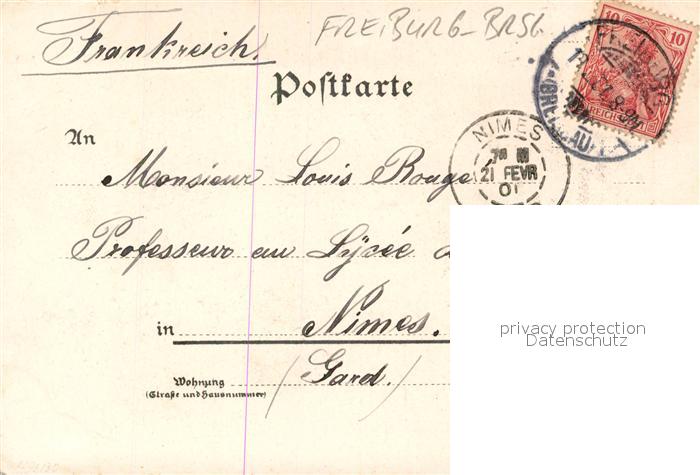 Frankreich.
FREIBURG-BRSG.
10 10
FREIBURG
(BREISGAU)
REICH
Postkarte
An
NIMES
21 FEVR
01
Monsieur Louis Rouge
Professeur au Lycée
in Nimes.
(Gard.)
Wohnung
(Straße und Hausnummer)
privacy protection
Datenschutz